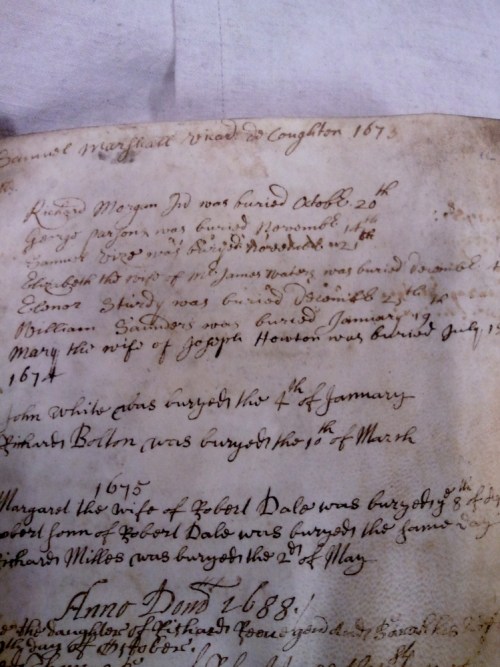 Samuel Marshall vicar de Coughton 1673
Richard Morgan was buried Octobr. 20th
George parsons was buried Novembr. 14th
was buryed 21th
Elizabeth the wife of Mr James Waters was buried decembr
Elenor Sturdy was buried decemb 25th
William Saunders was buried January 19th
Mary the wife of Joseph Howton was buried July
1674
John White was buryed the 4th of January
Richard Bolton was buryed the 10th of March
1675
Margaret the wife of Robert Dale was buryed ye 8th of
Robert sonn of Robert Dale was buryed the same day
Richard Milles was buryed the 2d of May
Anno Dom 1688.
the daughter of Richard
day of October.